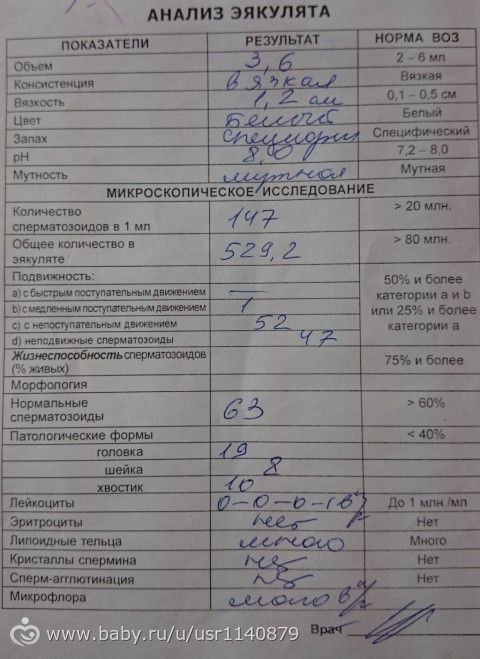 АНАЛИЗ ЭЯКУЛЯТА
ПОКАЗАТЕЛИ РЕЗУЛЬТАТ НОРМА ВОЗ
Объем 3,6 2 – 6 мл
Консистенция вязкая Вязкая
Вязкость 1,2 см 0,1 – 0,5 см
Цвет Белый Белый
Запах Специфич Специфический
pH 8,0 7,2 – 8,0
Мутность мутная Мутная
МИКРОСКОПИЧЕСКОЕ ИССЛЕДОВАНИЕ
Количество
сперматозоидов в 1 мл 147 > 20 млн.
Общее количество в
эякуляте 529,2 > 80 млн.
Подвижность:
a) с быстрым поступательным движением —
b) с медленным поступательным движением 1
c) с непоступательным движением 52
d) неподвижные сперматозоиды 47
50% и более
категории a и b
или 25% и более
категории a
Жизнеспособность сперматозоидов
(% живых) 75% и более
Морфология
Нормальные
сперматозоиды 63 > 60%
Патологические формы < 40%
головка 19
шейка 8
хвостик 10
Лейкоциты 0-0-0-1 в До 1 млн /мл
Эритроциты нет Нет
Липоидные тельца много Много
Кристаллы спермина нет Нет
Сперм-агглютинация нет Нет
Микрофлора мало в
Врач
www.baby.ru/u/usr1140879